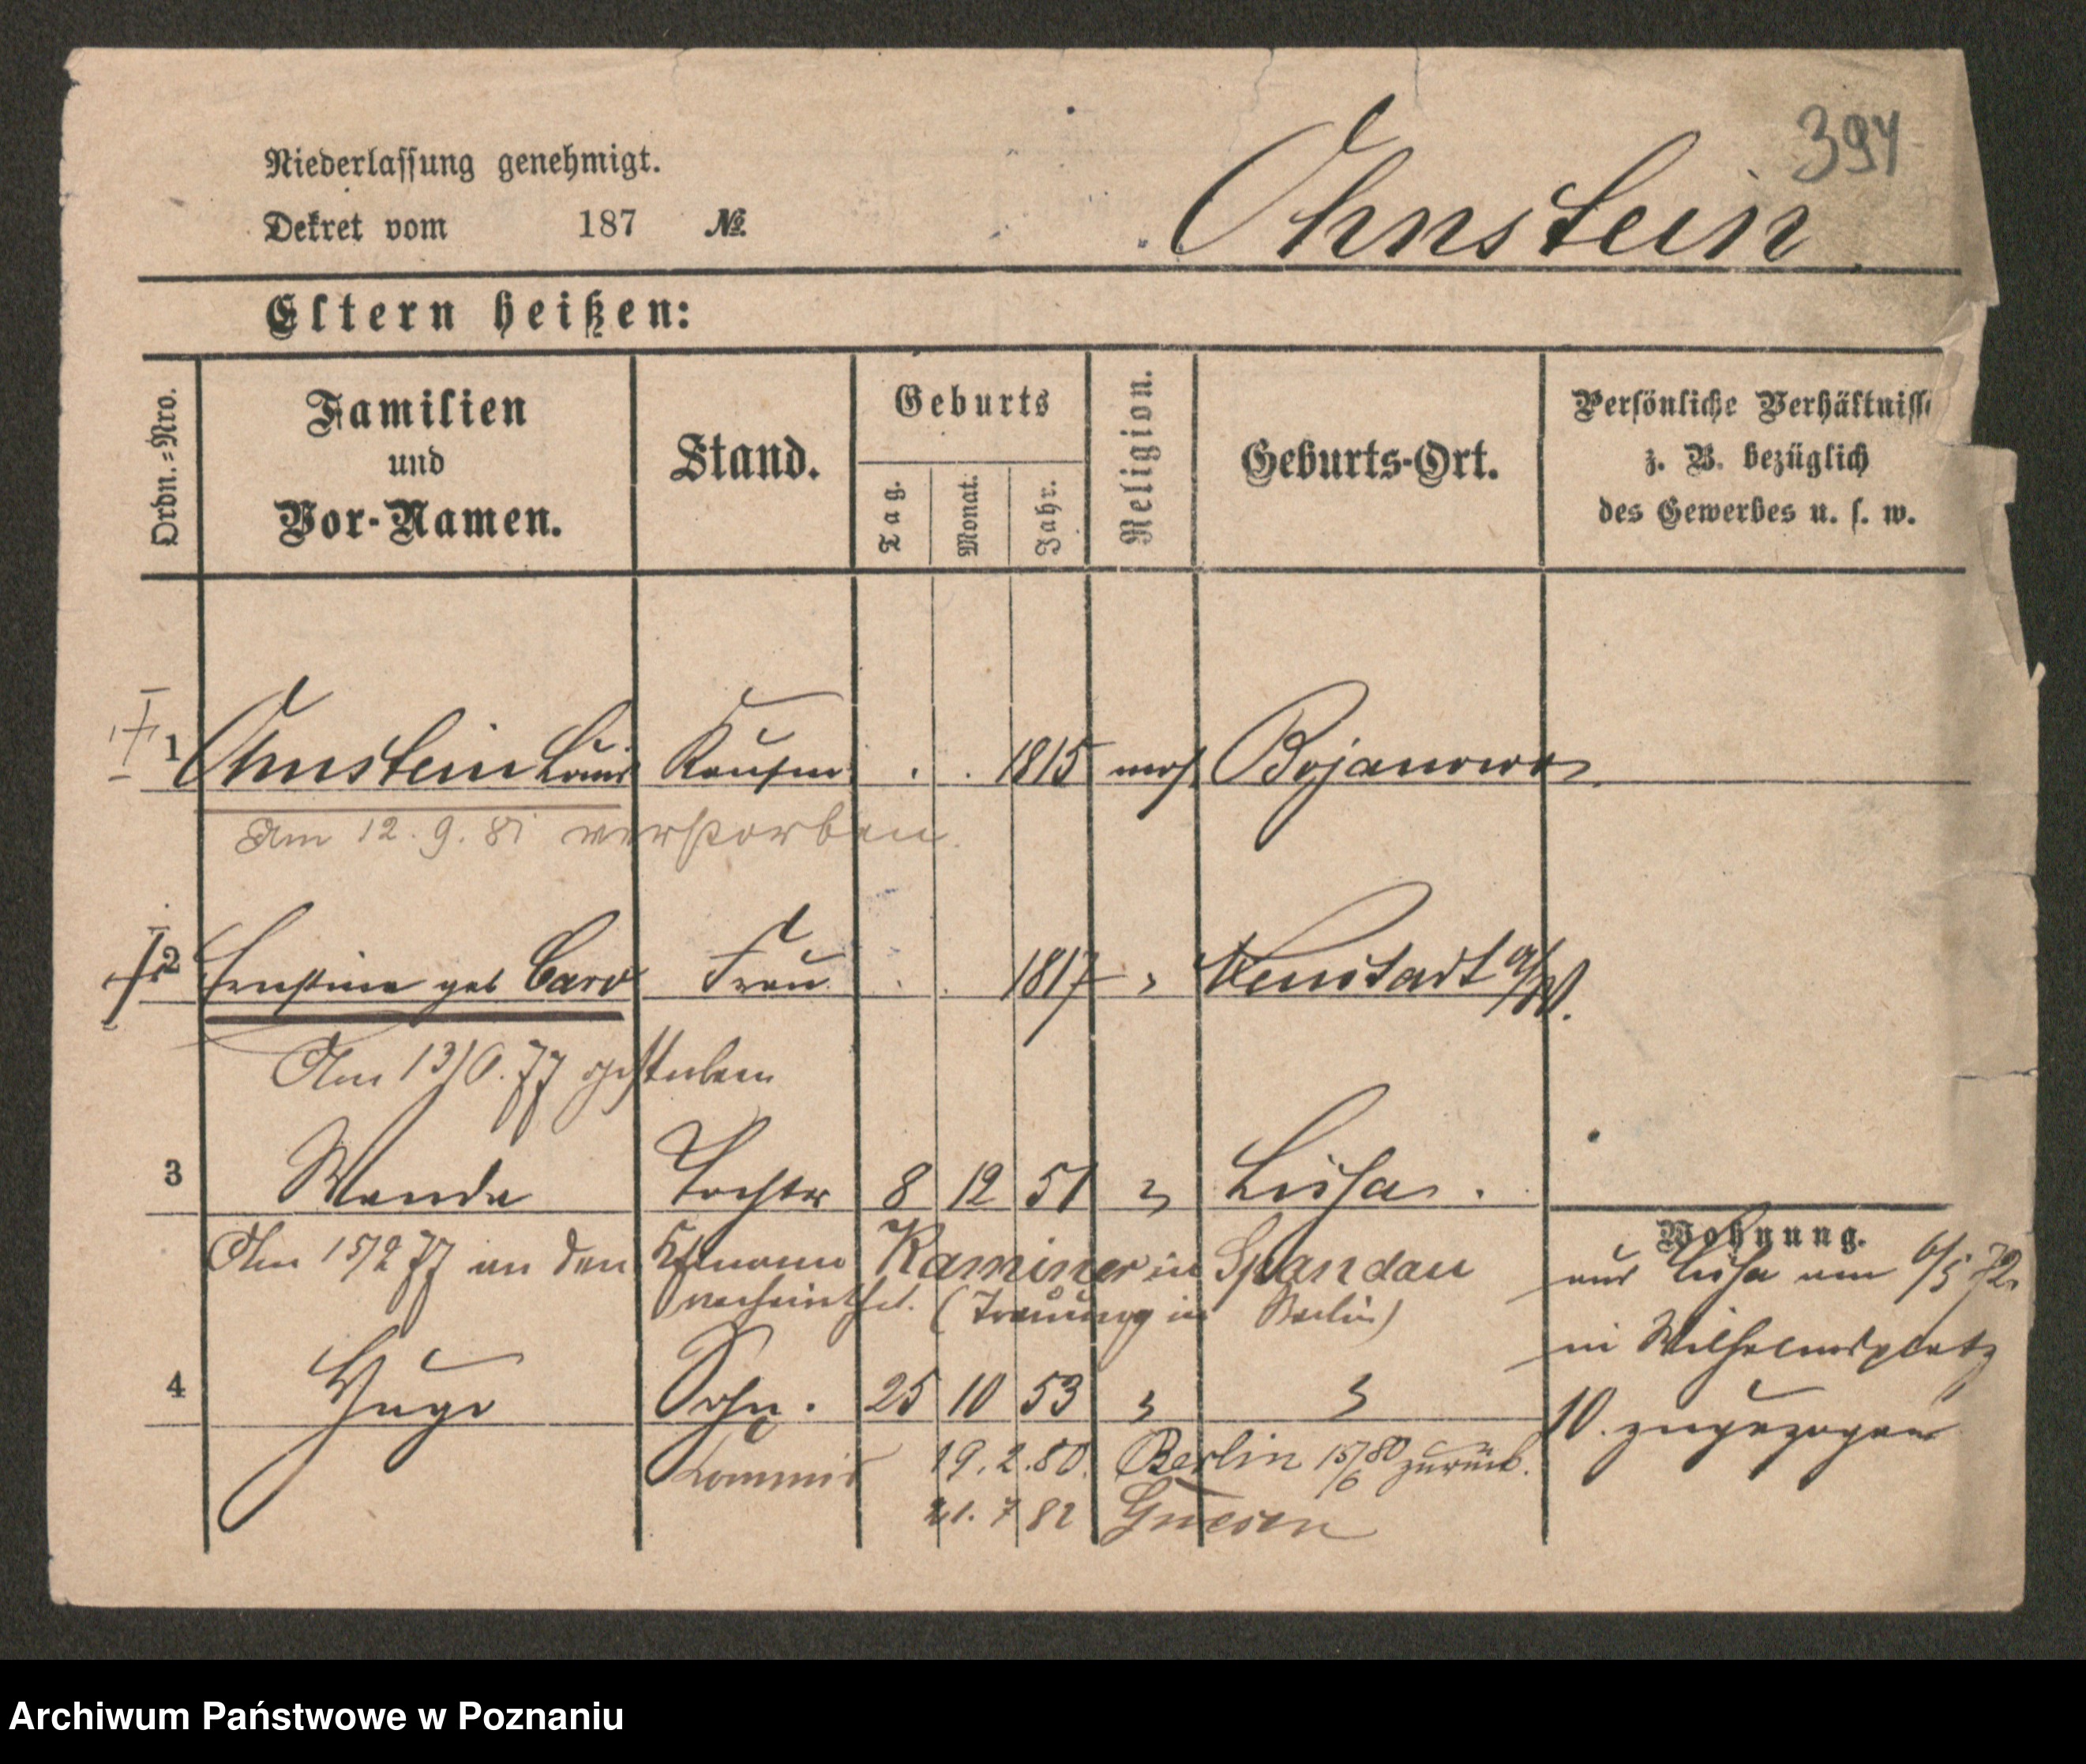 394
Niederlassung genehmigt.
Dekret vom 187 №.
Ohnstein
Eltern heißen:
Ordn.=Nro.
Familien
und
Vor-Namen.
Stand.
Geburts
Tag.
Monat.
Jahr.
Religion.
Geburts-Ort.
Persönliche Verhältnisse
z. B. bezüglich
des Gewerbes u. s. w.
1 Ohnstein Louis Kaufm . . 1815 mos. Bojanowo
Am 12. 9. 81 verstorben.
2 Ernstine geb Caro Frau . . 1817 " Neustadt a/W.
Am 13/6. 77 gestorben
3 Wanda Tochter 8 12 51 " Lissa.
Am 15/2 77 an den Kfmann Kaminer in Spandau
verheirathet. (Trauung in Berlin)
4 Hugo Sohn. 25 10 53 " "
Commis 19. 2. 80. Berlin 15/6 80 zurück.
21. 7 82 Gnesen
Wohnung.
aus Lissa am 6/5 72.
in Wilhelmsplatz
10. zugezogen
Archiwum Państwowe w Poznaniu